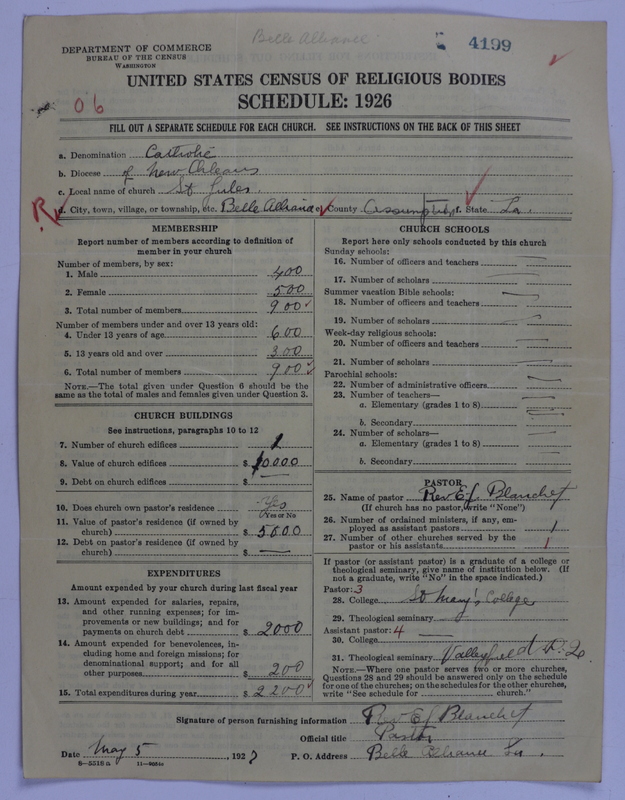 Belle Alliance
4199
DEPARTMENT OF COMMERCE
BUREAU OF THE CENSUS
WASHINGTON
UNITED STATES CENSUS OF RELIGIOUS BODIES
SCHEDULE: 1926
06
FILL OUT A SEPARATE SCHEDULE FOR EACH CHURCH. SEE INSTRUCTIONS ON THE BACK OF THIS SHEET
a. Denomination Catholic
b. Diocese of New Orleans
c. Local name of church St Jules.
R
d. City, town, village, or township, etc. Belle Alliance e. County Assumption f. State La.
MEMBERSHIP
Report number of members according to definition of
member in your church
Number of members, by sex:
1. Male 400
2. Female 500
3. Total number of members 900
Number of members under and over 13 years old:
4. Under 13 years of age 600
5. 13 years old and over 300
6. Total number of members 900
NOTE.—The total given under Question 6 should be the
same as the total of males and females given under Question 3.
CHURCH BUILDINGS
See instructions, paragraphs 10 to 12
7. Number of church edifices 1
8. Value of church edifices $10000
9. Debt on church edifices $ —
10. Does church own pastor's residence Yes
Yes or No
11. Value of pastor's residence (if owned by
church) $ 5000
12. Debt on pastor's residence (if owned by
church) $ —
EXPENDITURES
Amount expended by your church during last fiscal year
13. Amount expended for salaries, repairs,
and other running expenses; for im-
provements or new buildings; and for
payments on church debt $ 2000
14. Amount expended for benevolences, in-
cluding home and foreign missions; for
denominational support; and for all
other purposes $ 200
15. Total expenditures during year $ 2200
CHURCH SCHOOLS
Report here only schools conducted by this church
Sunday schools:
16. Number of officers and teachers —
17. Number of scholars —
Summer vacation Bible schools:
18. Number of officers and teachers —
19. Number of scholars —
Week-day religious schools:
20. Number of officers and teachers —
21. Number of scholars —
Parochial schools:
22. Number of administrative officers —
23. Number of teachers—
a. Elementary (grades 1 to 8) —
b. Secondary —
24. Number of scholars—
a. Elementary (grades 1 to 8) —
b. Secondary —
PASTOR
25. Name of pastor Rev E J Blanchet
(If church has no pastor, write "None")
26. Number of ordained ministers, if any, em-
ployed as assistant pastors 1
27. Number of other churches served by the
pastor or his assistants 1
If pastor (or assistant pastor) is a graduate of a college or
theological seminary, give name of institution below. (If
not a graduate, write "No" in the space indicated.)
Pastor: 3
28. College St Mary's College
29. Theological seminary
Assistant pastor: 4
30. College —
31. Theological seminary Valleyfield P. Q.
NOTE.—Where one pastor serves two or more churches,
Questions 28 and 29 should be answered only on the schedule
for one of the churches; on the schedules for the other churches,
write "See schedule for church."
Signature of person furnishing information Rev E J Blanchet
Official title Pastor
Date May 5, 1927 P. O. Address Belle Alliance La.